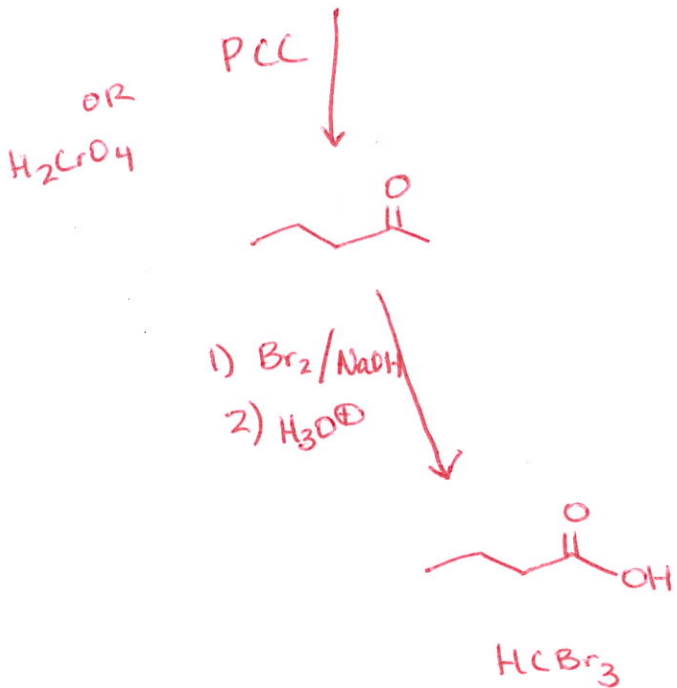 PCC
OR
H₂CrO₄
O
1) Br₂/NaOH
2) H₃O⊕
O
OH
HCBr₃